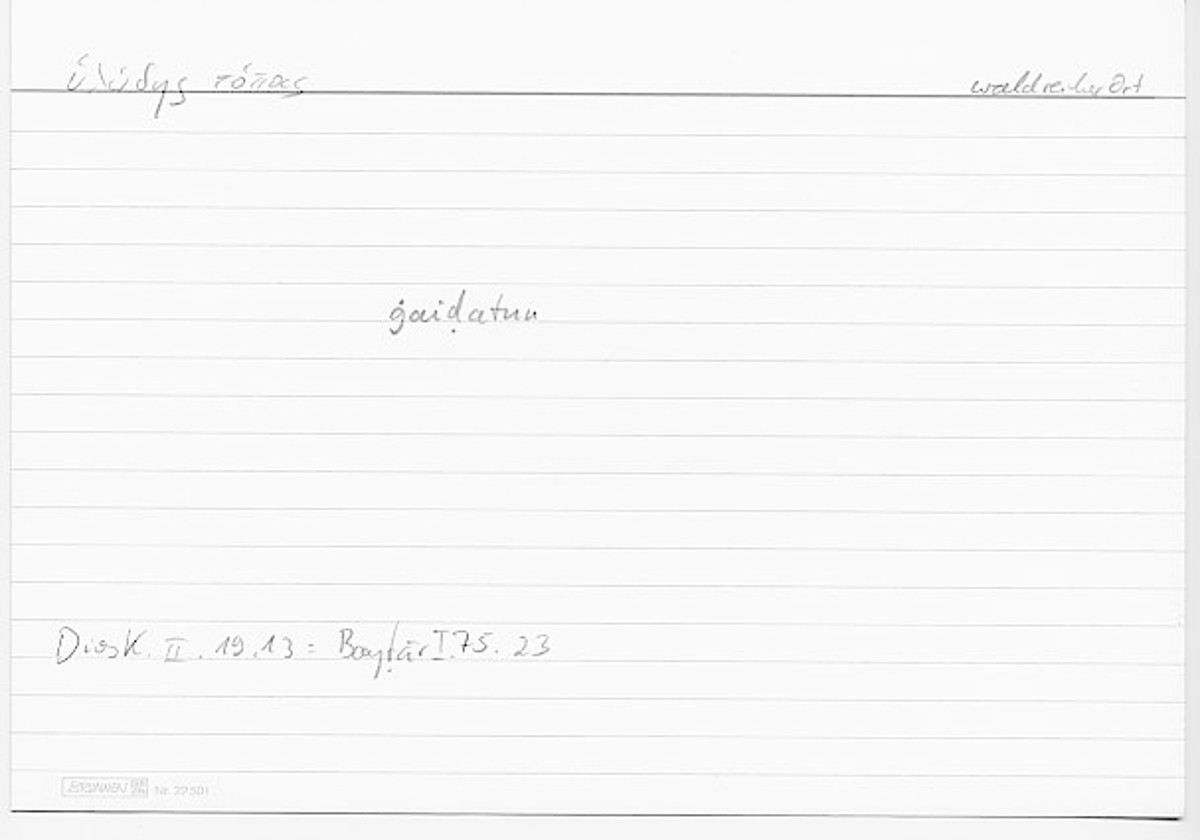 ὑλώδης τόπος waldreicher Ort
ġaiḍatun
Diosk. II. 19.13 = Bayṭār I.75.23
BRUNNEN Nr. 22501